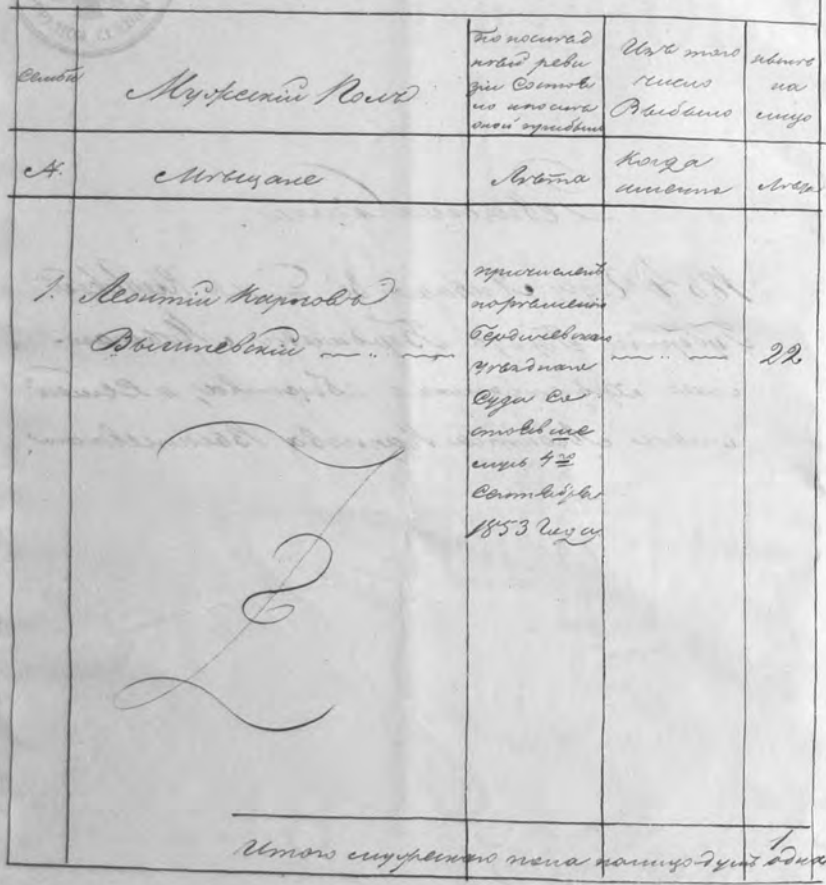 Семьи
Мужскій Полъ
По послед
ней реви
зіи Состоя
ло и после
оной прибыло
Изъ того
число
Выбыло
нынѣ
на
лицо
№.
Мѣщане
Лѣта
Когда
именно
Лѣта
1. Леонтій Карповъ
Вышневскій
причислен
порешению
Бердичевскаго
Уезднаго
Суда Со
стоявше
муся 4го
Сентября
1853 Года
22
1
Итого мужескаго пола налицо душъ одна